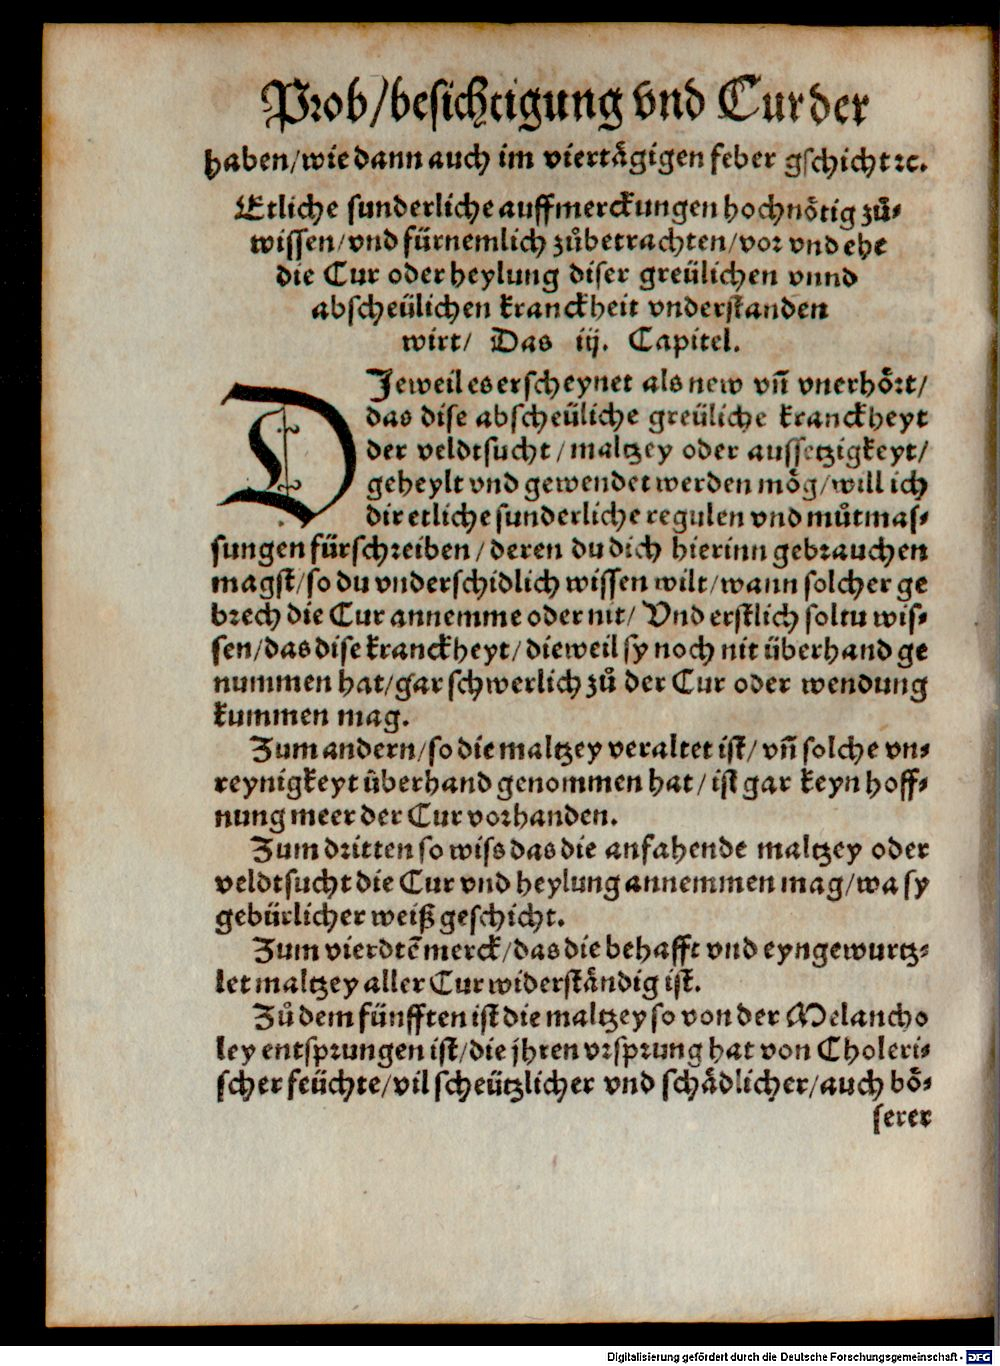 Prob/besichtigung vnd Cur der
haben/wie dann auch im viertägigen feber gschicht ꝛc.
Etliche sunderliche auffmerckungen hochnötig zů-
wissen/vnd fürnemlich zůbetrachten/vor vnd ehe
die Cur oder heylung diser greülichen vnnd
abscheülichen kranckheit vnderstanden
wirt/ Das iij. Capitel.
DJeweil es erscheynet als new vñ vnerhört/
das dise abscheüliche greüliche kranckheyt
der veldtsucht/maltzey oder aussetzigkeyt/
geheylt vnd gewendet werden mög/will ich
dir etliche sunderliche regulen vnd můtmas-
sungen fürschreiben/deren du dich hierinn gebrauchen
magst/so du vnderschidlich wissen wilt/wann solcher ge
brech die Cur annemme oder nit/ Vnd erstlich soltu wis-
sen/das dise kranckheyt/dieweil sy noch nit überhand ge
nummen hat/gar schwerlich zů der Cur oder wendung
kummen mag.
Zum andern/so die maltzey veraltet ist/vñ solche vn-
reynigkeyt überhand genommen hat/ist gar keyn hoff-
nung meer der Cur vorhanden.
Zum dritten so wiss das die anfahende maltzey oder
veldtsucht die Cur vnd heylung annemmen mag/wa sy
gebürlicher weiß geschicht.
Zum vierdtẽ merck/das die behafft vnd eyngewurtz-
let maltzey aller Cur widerständig ist.
Zů dem fünfften ist die maltzey so von der Melancho
ley entsprungen ist/die jhren vrsprung hat von Choleri-
scher feüchte/vil scheützlicher vnd schädlicher/auch bö-
serer
Digitalisierung gefördert durch die Deutsche Forschungsgemeinschaft - DFG